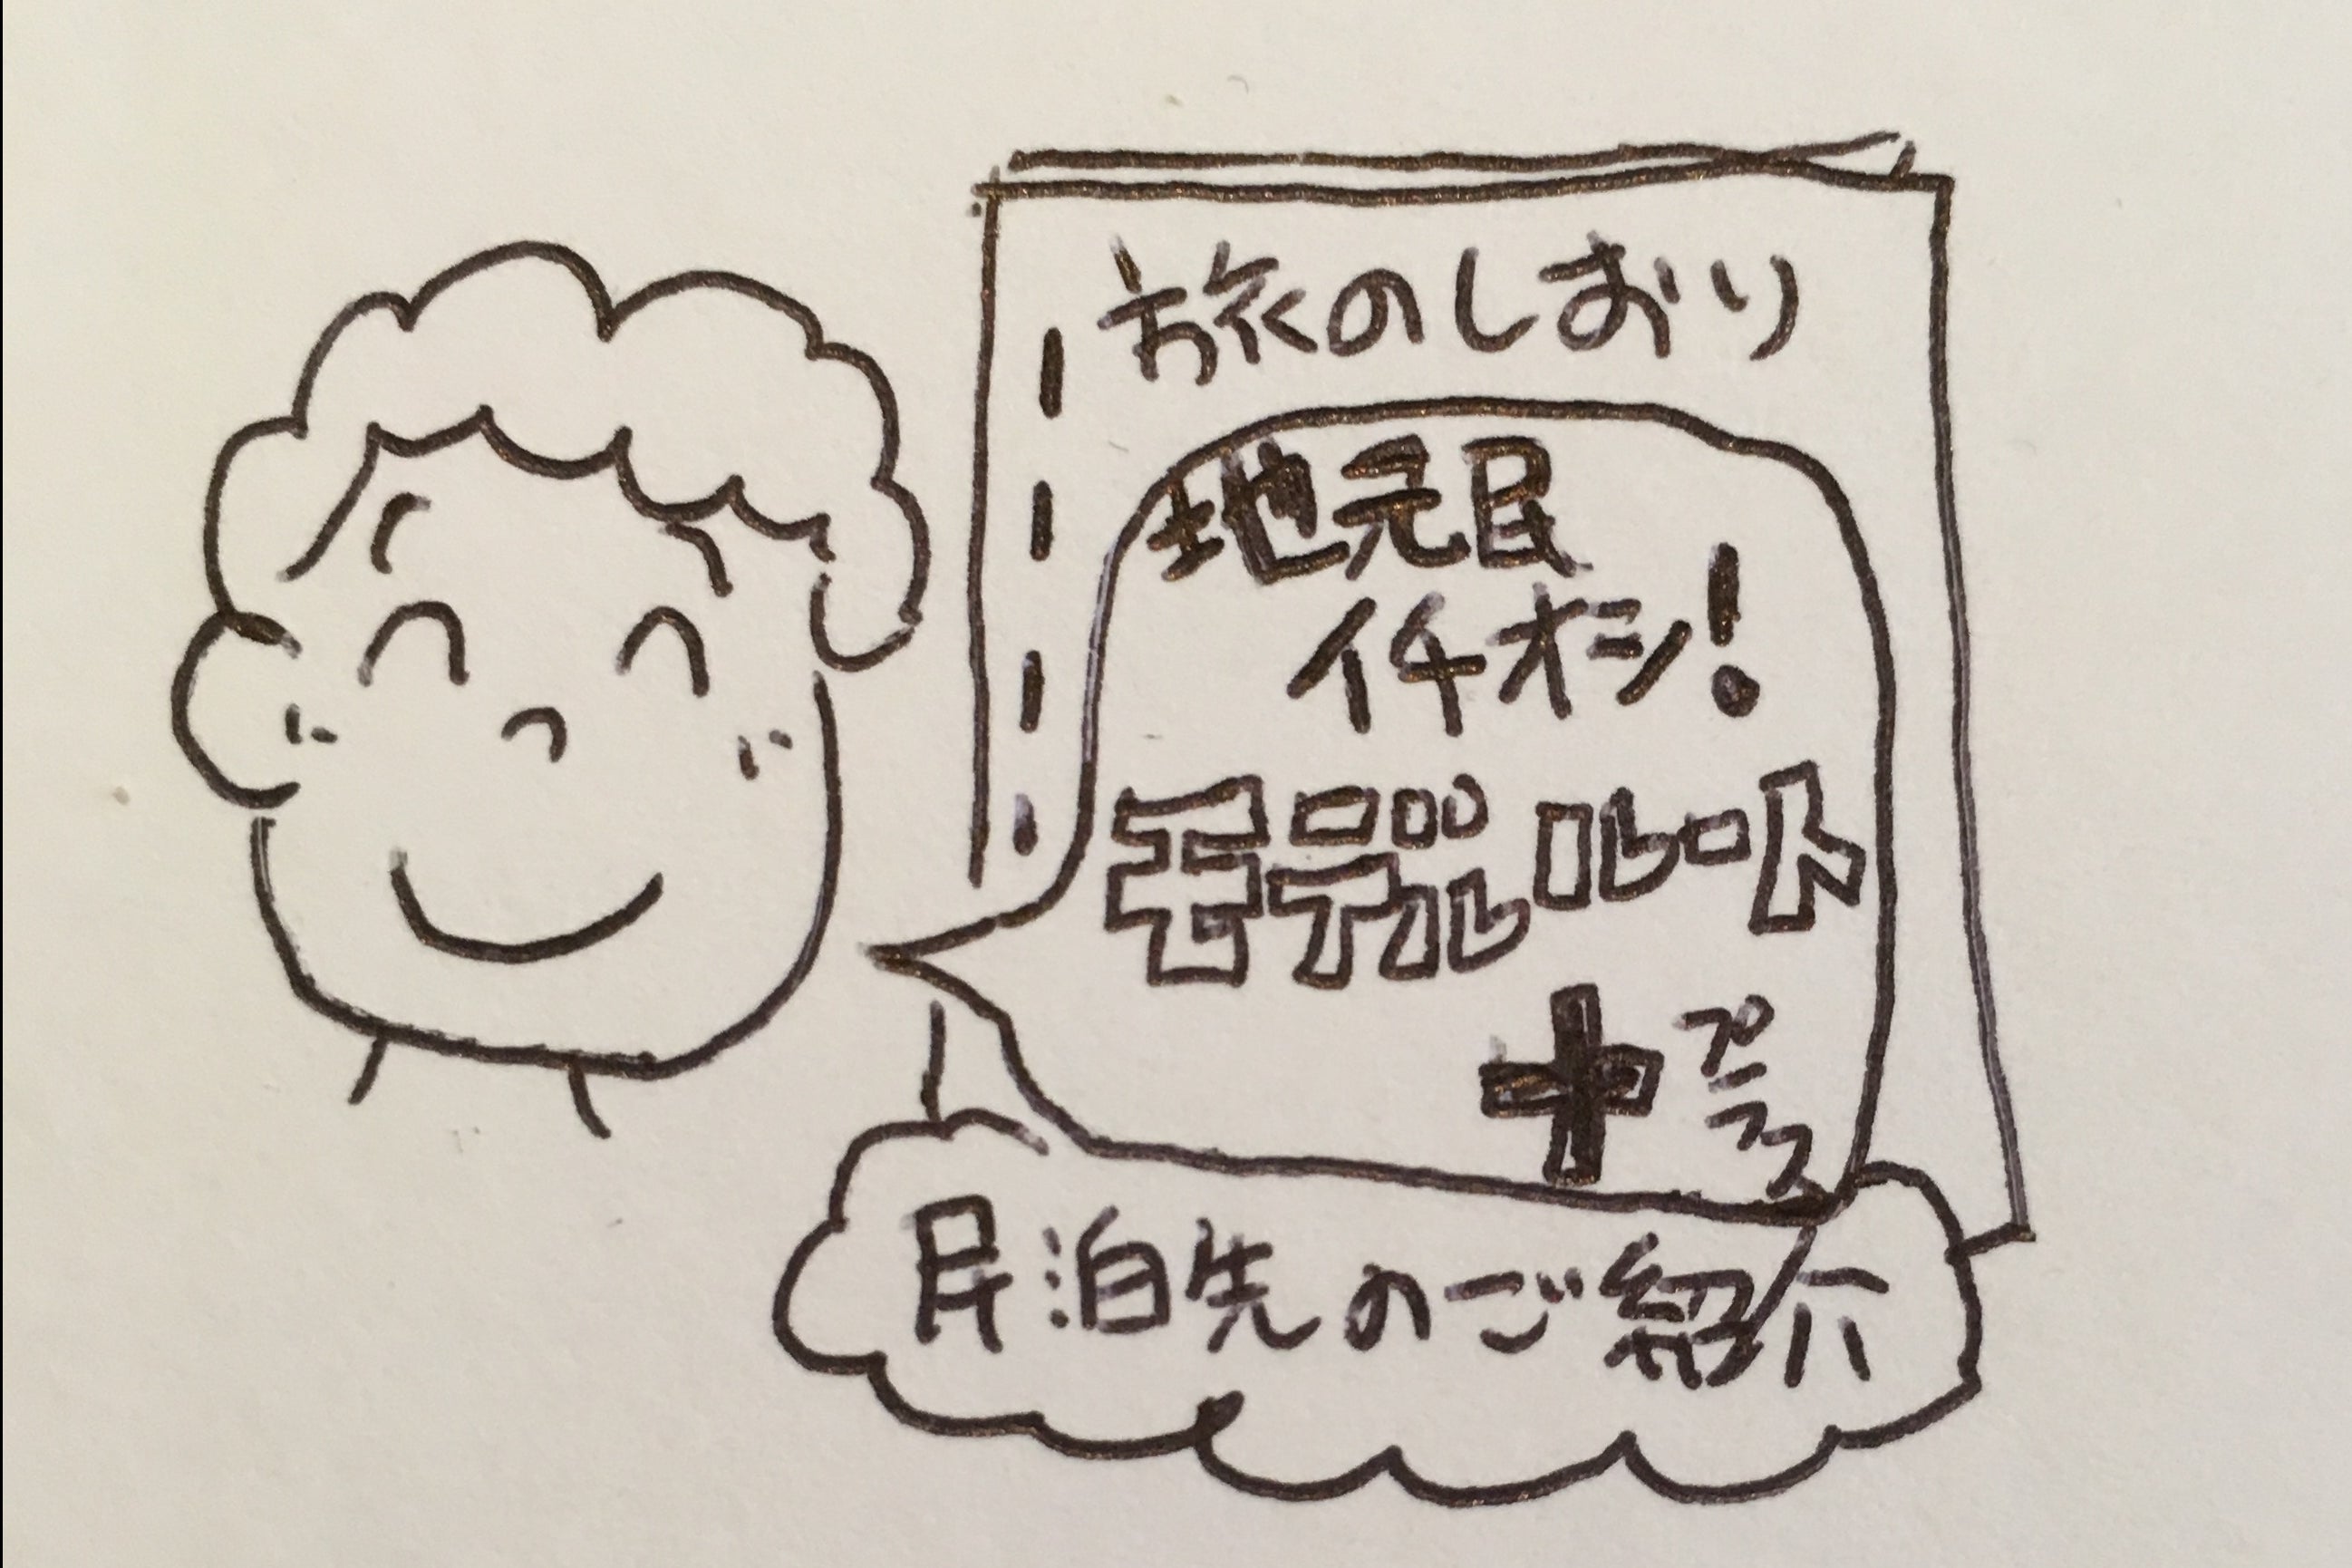 旅のしおり
地元民
イチオシ!
モデルルート
+プラス
民泊先のご紹介